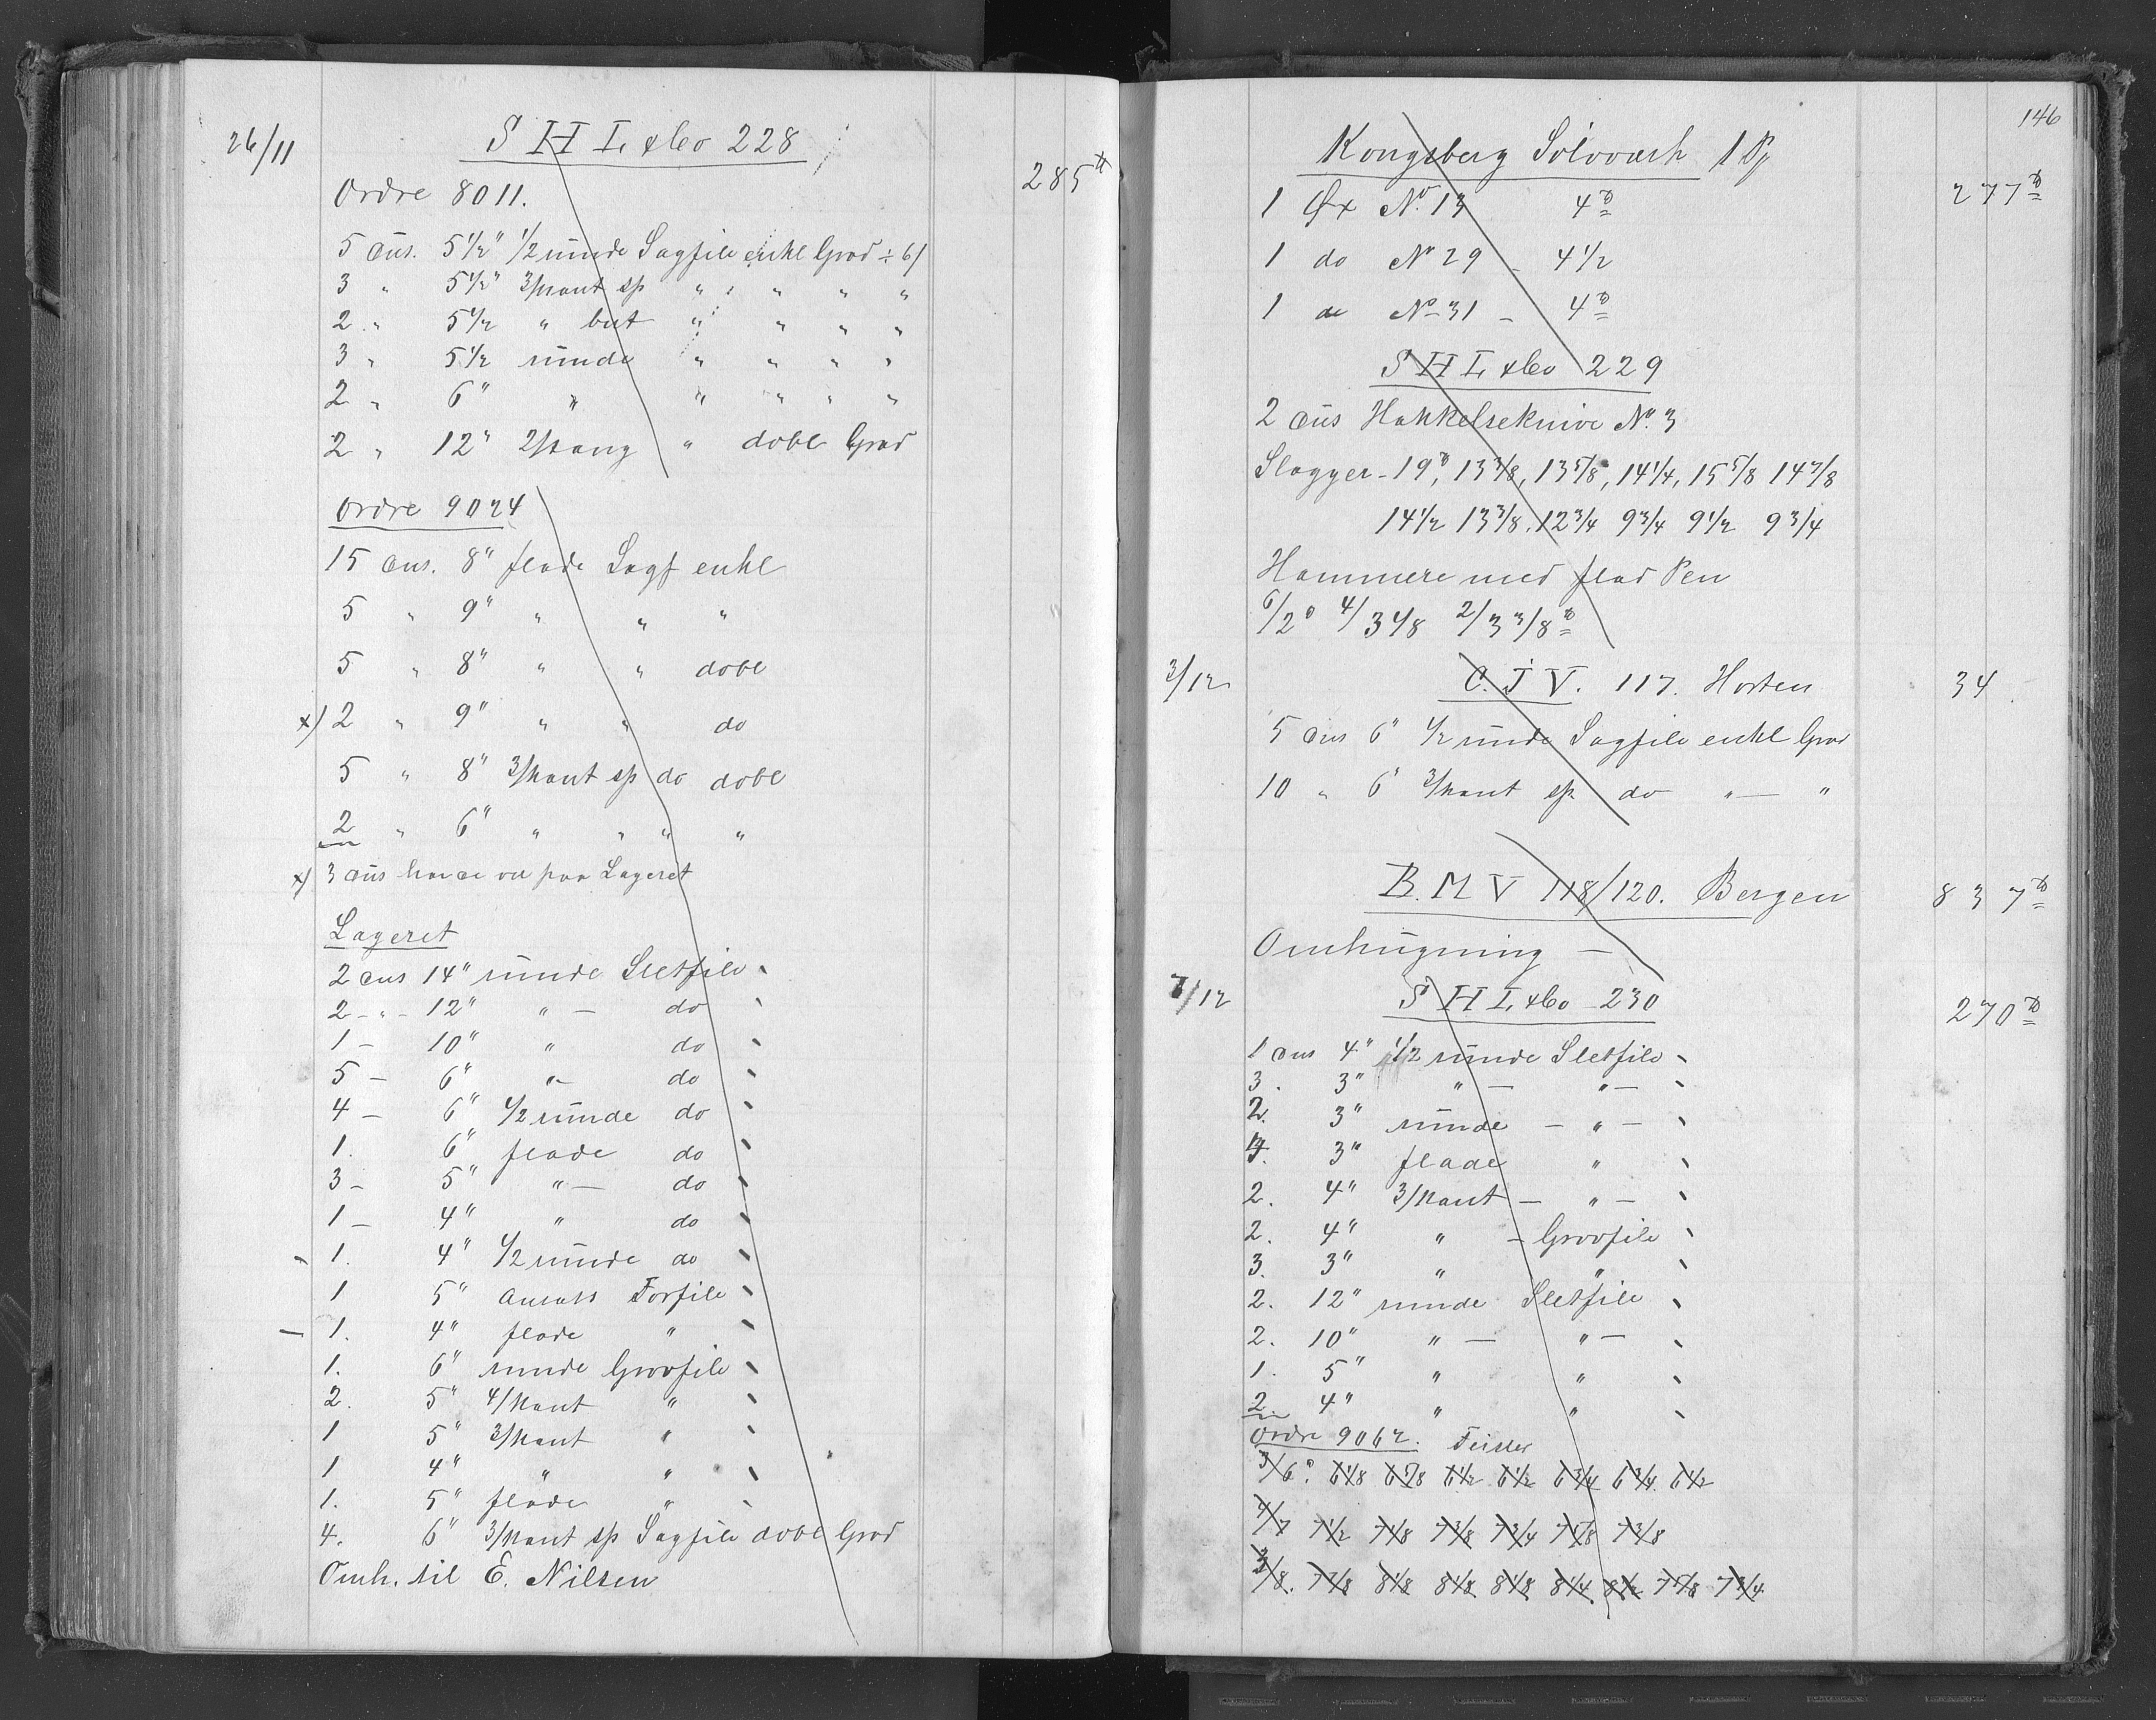 26/11
S H L & Co 228
285 ℔
Ordre 8011.
5 dus. 5 1/2" 1/2 runde Sagfile enkl Grad ÷ 6/
3 " 5 1/2" 3/kant sp " " " "
2 " 5 1/2 " but " " " "
3 " 5 1/2 runde " " " "
2 " 6" " " " " "
2 " 12" 2/kang " dobl Grad
Ordre 9024
15 dus. 8" flade Sagf enkl
5 " 9" " " "
5 " 8" " " dobl
x) 2 " 9" " " do
5 " 8" 3/kant sp do dobl
2 " 6" " " " "
x) 3 dus have vi paa Lageret
Lageret
2 dus 14" runde Sletfile
2 - " - 12" " — do
1 — 10" " do
5 — 6" " — do
4 — 6" 1/2 runde do
1. 6" flade do
3 — 5" " — do
1 — 4" " do
1. 4" 1/2 runde do
1 5" Ansats Forfile
— 1. 4" flade "
1. 6" runde Grovfile
2. 5" 4/kant "
1 5" 3/kant "
1 4" " "
1. 5" flade "
4. 6" 3/kant sp Sagfile dobl Grad
Omh. til E. Nilsen
146
Kongsberg Sölvværk 1 P/
277 ℔
1 Øx No. 13 4 ℔
1 do No 29 - 4 1/2
1 do No 31 - 4 ℔
S H L & Co 229
2 dus Hakkelseknive No. 3
Slagger - 19 ℔, 13 3/8, 13 5/8, 14 1/4, 15 5/8 14 7/8
14 1/2 13 3/8. 12 3/4 9 3/4 9 1/2 9 3/4
Hammere med flad Pen
6/2 ℔ 4/3 1/8 2/3 3/8 ℔
3/12
C. J V. 117. Horten
34
5 dus 6" 1/2 runde Sagfile enkl Grad
10 " 6" 3/kant sp do " — "
B. M V 118/120. Bergen
837 ℔
Omhugning —
7/12
S H L & Co 230
270 ℔
1 dus 4" 1/2 runde Sletfile
3. 3" " — " —
2. 3" runde — " —
3" flade "
2. 4" 3/kant — " —
2. 4" " — Grovfile
3. 3" " "
2. 12" runde Sletfile
2. 10" " — " —
1. 5" " "
2 4" " "
Ordre 9062.
3/6 ℔ 6 1/8 6 7/8 6 1/2 6 1/2 6 3/4 6 3/4 6 1/2
4/7 7 1/2 7 1/8 7 3/8 7 3/4 7 5/8 7 3/8
3/8. 7 7/8 8 1/8 8 1/8 8 1/8 8 1/4 8 1/2 7 5/8 7 3/4